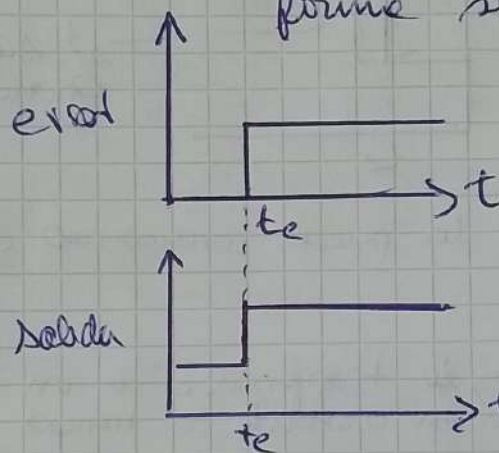 forma
error
t
te
salida
t
te